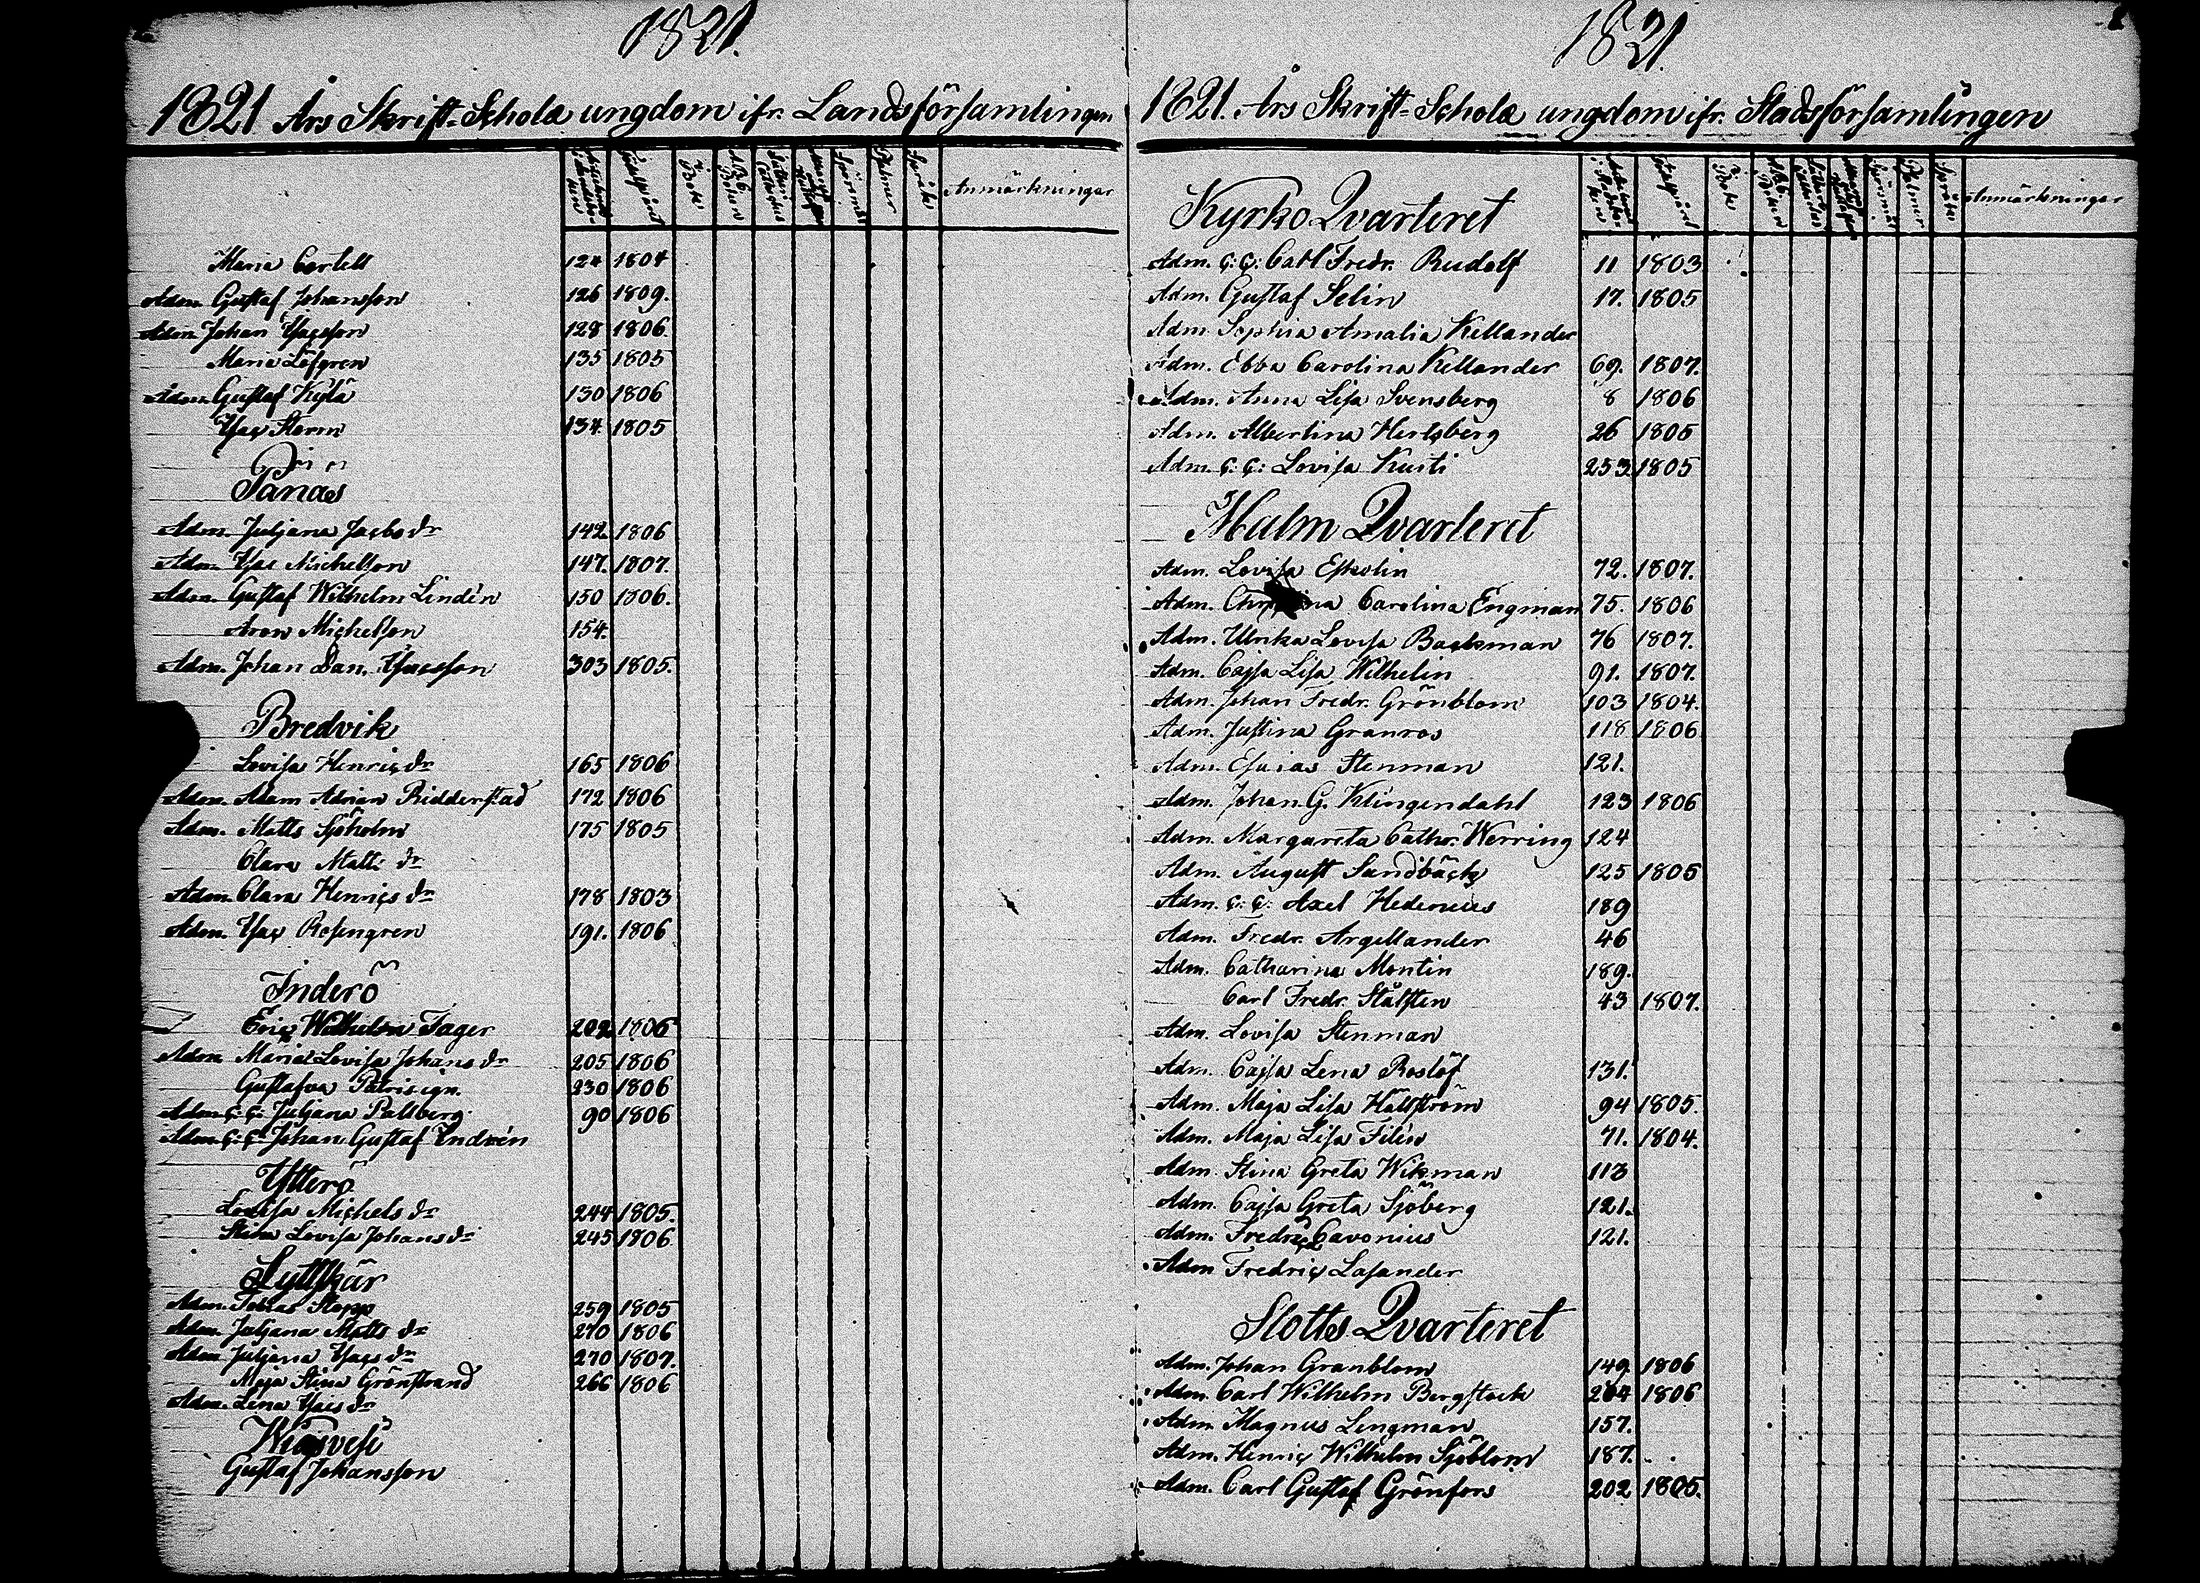 1821.
1821 Års Skrift-Schola ungdom ifr. Landsförsamlingen
Födelseåret
I Bok
ABC Boken
Psalmer
Språk
Anmärkningar
Maria Cortell 124 1804
Adm. Gustaf Johansson 126 1809.
Adm. Johan Isacsson 128 1806
Maria Löfgren 135 1805
Adm. Gustaf Kylä 130 1806
Isaç Storm 134 1805
Pänäs
Adm. Juljana Jacobs dr 142 1806
Adm. Isac Michelsson 147. 1807.
Adm. Gustaf Wilhelm Lindén 150 1806.
Aron Michelsson 154.
Adm. Johan Dan. Isacsson 303 1805.
Bredvik
Lovisa Henriçs dr 165 1806
Adm. Adam Adrian Ridderstad 172 1806
Adm. Matts Sjöholm 175 1805
Clara Matts dr
Adm. Clara Henriçs dr 178 1803
Adm. Isaç Rosengren 191. 1806
Inderö
Eriç Wilhelm Fager 202 1806
Adm. Maria Lovisa Johans dr 205 1806
Gustafva 230 1806
Adm. ç: ç: Juljana Pallberg 90 1806
Adm. ç: ç: Johan Gustaf Indrén
Ytterö
Lovisa Michels dr 244 1805.
Stina Lovisa Johans dr 245 1806
Lyttskär
Adm. Tobias Stopp 259 1805
Adm. Juljana Matts dr 270 1806
Adm. Juljana Isacs dr 270 1807.
Maja Stina Grönstrand 266 1806
Adm. Lena Isacs dr
Kiasvesi
Gustaf Johansson
1821.
1821. Års Skrift-Schola ungdom ifr. Stadsförsamlingen
Födelseåret
I Bok
ABC Boken
Psalmer
Språk
Anmärkningar
Kyrko Qvarteret
Adm. ç: ç: Carl Fredr. Rudolf 11 1803
Adm. Gustaf Selin 17. 1805
Adm. Sophia Amalia Kellander
Adm. Ebba Carolina Kellander 69. 1807.
Adm. Anna Lisa Svensberg 8 1806
Adm. Albertina Hertsberg 26 1805
Adm. ç: ç: Lovisa Kusti 253 1805
Malm Qvarteret
Adm. Lovisa Eskolin 72. 1807.
Adm. Christina Carolina Engman 75. 1806
Adm. Ulrika Lovisa Backman 76 1807.
Adm. Cajsa Lisa Wilhelin 91. 1807.
Adm. Johan Fredr. Grönblom 103 1804.
Adm. Justina Granros 118 1806
Adm. Esaias Stenman 121.
Adm. Johan G. Klingendahl 123 1806
Adm. Margareta Cathr. Werring 124
Adm. August Sandbäck 125 1805
Adm. ç: ç: Axel Hedenius 189
Adm. Fredr. Argellander 46
Adm. Catharina Montin 189.
Carl Fredr. Stålsten 43 1807.
Adm. Lovisa Stenman
Adm. Cajsa Lena Roslöf 131.
Adm. Maja Lisa Hällström 94 1805.
Adm. Maja Lisa Filén 71. 1804.
Adm. Stina Greta Wikman 113
Adm. Cajsa Greta Sjöberg 121.
Adm. Fredriç Cavonius 121.
Adm Fredriç Lasander
Slotts Qvarteret
Adm. Johan Granblom 149. 1806
Adm. Carl Wilhelm Bergstock 204 1806
Adm. Magnus Lengman 157.
Adm. Henriç Wilhelm Sjöblom 187.
Adm. Carl Gustaf Grönfors 202 1805.